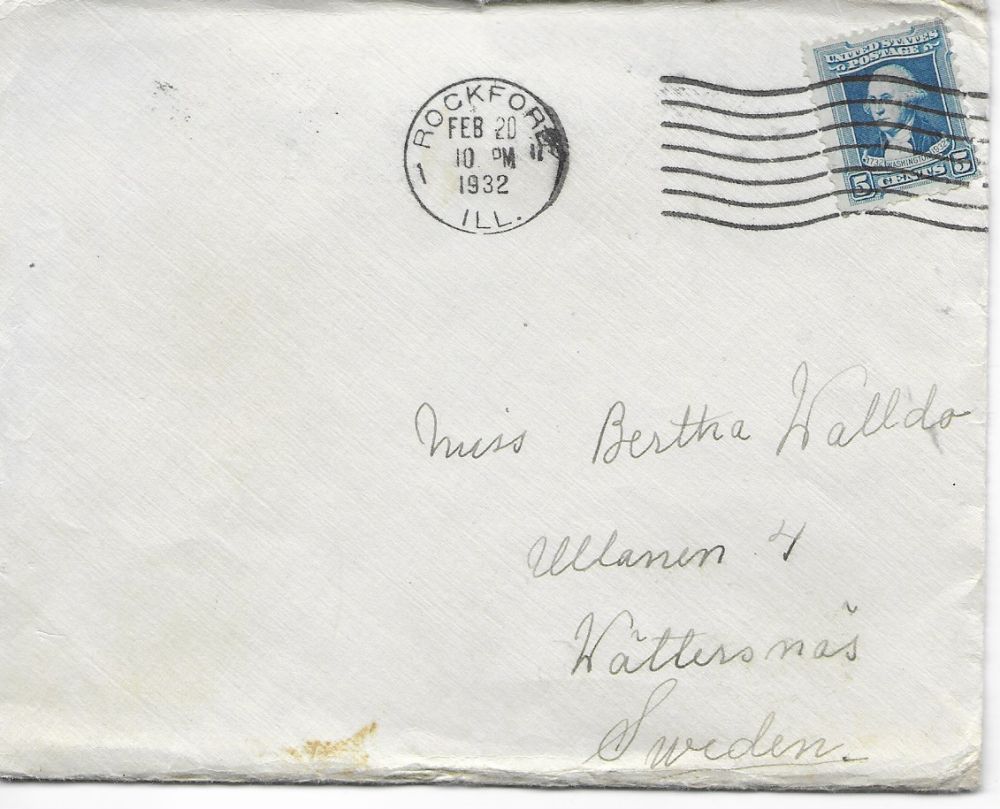 ROCKFORD
FEB 20
10 PM
1932
ILL.
UNITED STATES
POSTAGE
1732 WASHINGTON 1932
5 CENTS 5
Miss Bertha Walldo
Ullanen 4
Wättersnäs
Sweden.